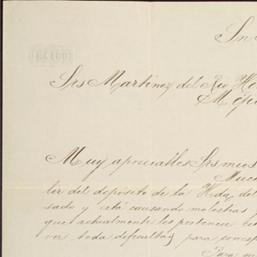 Sres Martinez del Rio
Muy apreciables Sres mios
ler del depósito de la Hda. del
sado y está causando molestias
que actualmente les pertenece
toda dificultad para
Para